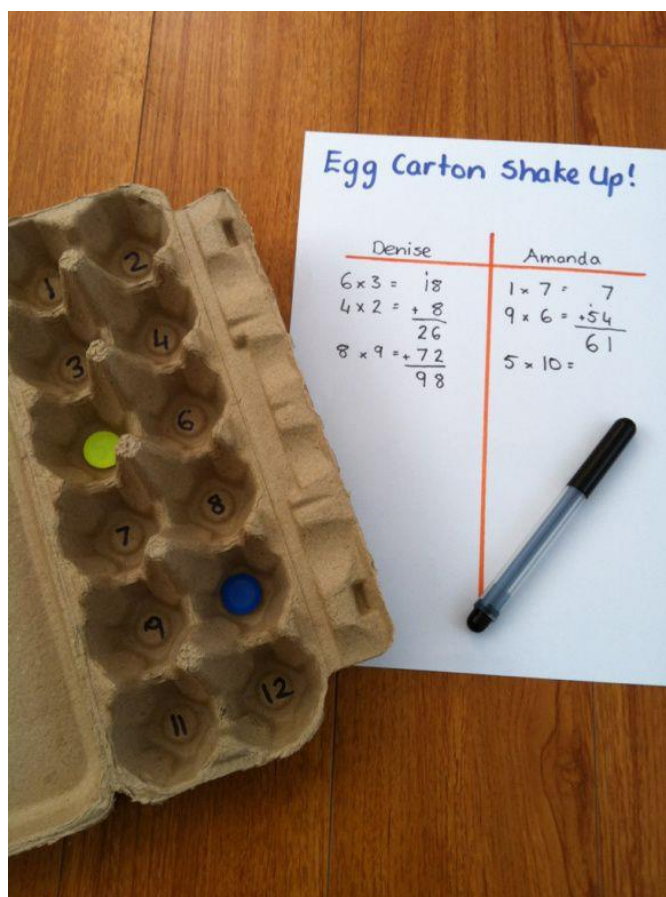 Egg Carton Shake Up!
Denise
6 x 3 = 18
4 x 2 = + 8
26
8 x 9 = + 72
98
Amanda
1 x 7 = 7
9 x 6 = +54
61
5 x 10 =
1 2
3 4
6
7 8
9
11 12